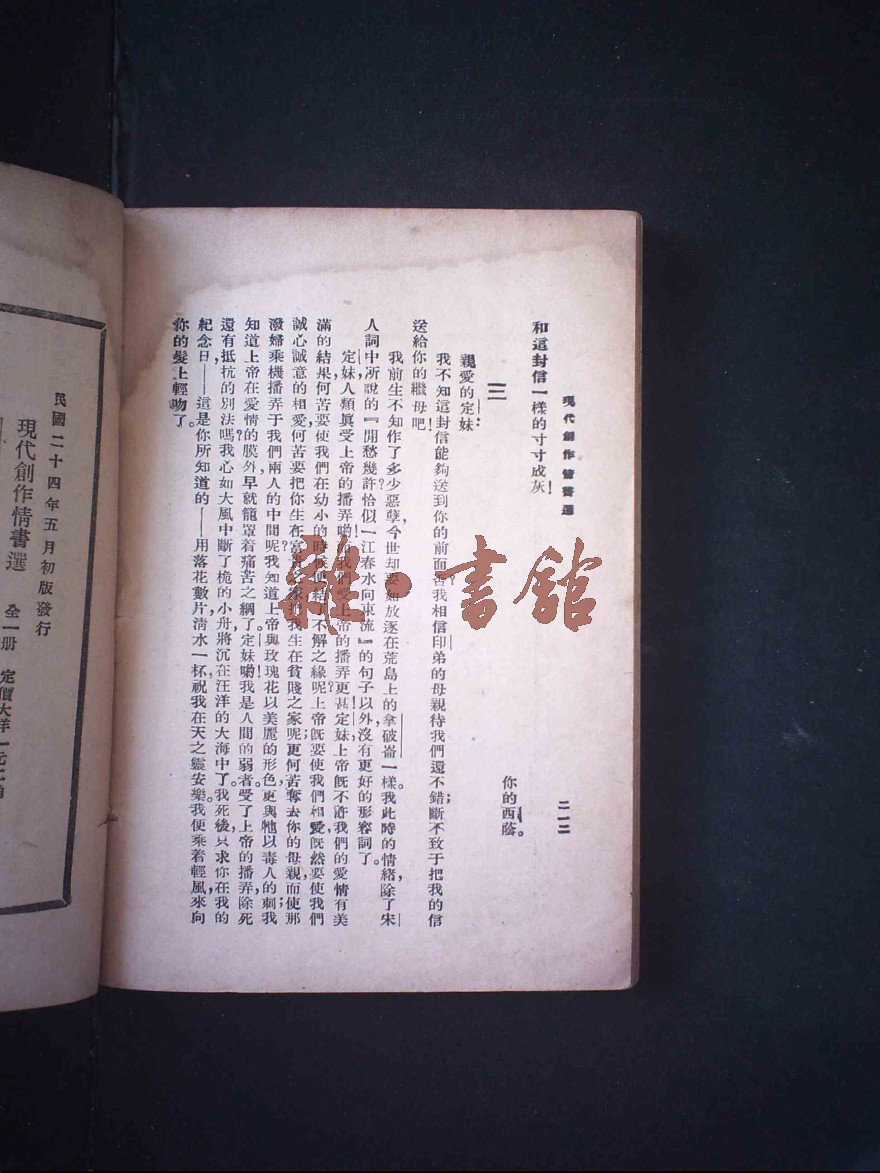 現代創作情書選
二一二
和這封信一樣的寸寸成灰！
你的西蔭。
三
親愛的定妹：
我不知這封信能夠送到你的前面否？我相信印弟的母親待我們還不錯；斷不致于把我的信
送給你的繼母吧！
我前生不知作了多少惡孽，今世却要如放逐在荒島上的拿破崙一樣。我此時的情緒，除了宋
人詞中所說的『閒愁幾許？恰似一江春水向東流！』的句子以外，沒有更好的形容詞了。
定妹，人類眞受上帝的播弄喲！我們受上帝的播弄更甚！定妹，上帝旣不許我們的愛情有美
滿的結果，何苦要使我們在幼小的時候便結不解之緣呢？上帝旣要使我們相愛，旣然要使我們
誠心誠意的相愛，何苦要把你生在富貴之家，把我生在貧賤之家呢？更何苦奪去你的母親，而使那
潑婦乘機播弄于我們兩人的中間呢？我知道上帝與玫瑰花以美麗的形色，更與牠以毒人的刺；我
知道上帝在愛情的膜外，早就籠罩着痛苦之網了。定妹喲！我是人間的弱者，受了上帝的播弄，除死
還有抵抗的別法嗎？我心如大風中斷了桅的小舟，將沉在汪洋的大海中了。我死後，只求你在我的
紀念日——這是你所知道的——用落花數片，清水一杯，祝我在天之靈安樂，我便乘着輕風來向
你的髮上輕吻了。
民國二十四年五月初版發行
現代創作情書選
全一册
定價大洋一元二角
雜·書館